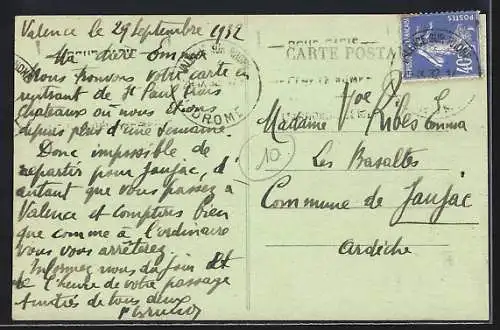 Valence le 29 Septembre 1932
Ma chère Emma
Nous trouvons votre carte en
rentrant de St Paul trois
chateaux où nous étions
depuis plus d'une semaine.
Donc impossible de
repartir pour Jaujac, d'
autant que vous passez à
Valence et comptons bien
que comme à l'ordinaire
vous vous arrêterez
Informez nous du jour et
de l'heure de votre passage
Amitiés de tous deux
CARTE POSTALE
DROME
POSTES
40
Madame Vve Ribes Emma
Les Basaltes
Commune de Jaujac
Ardèche
10